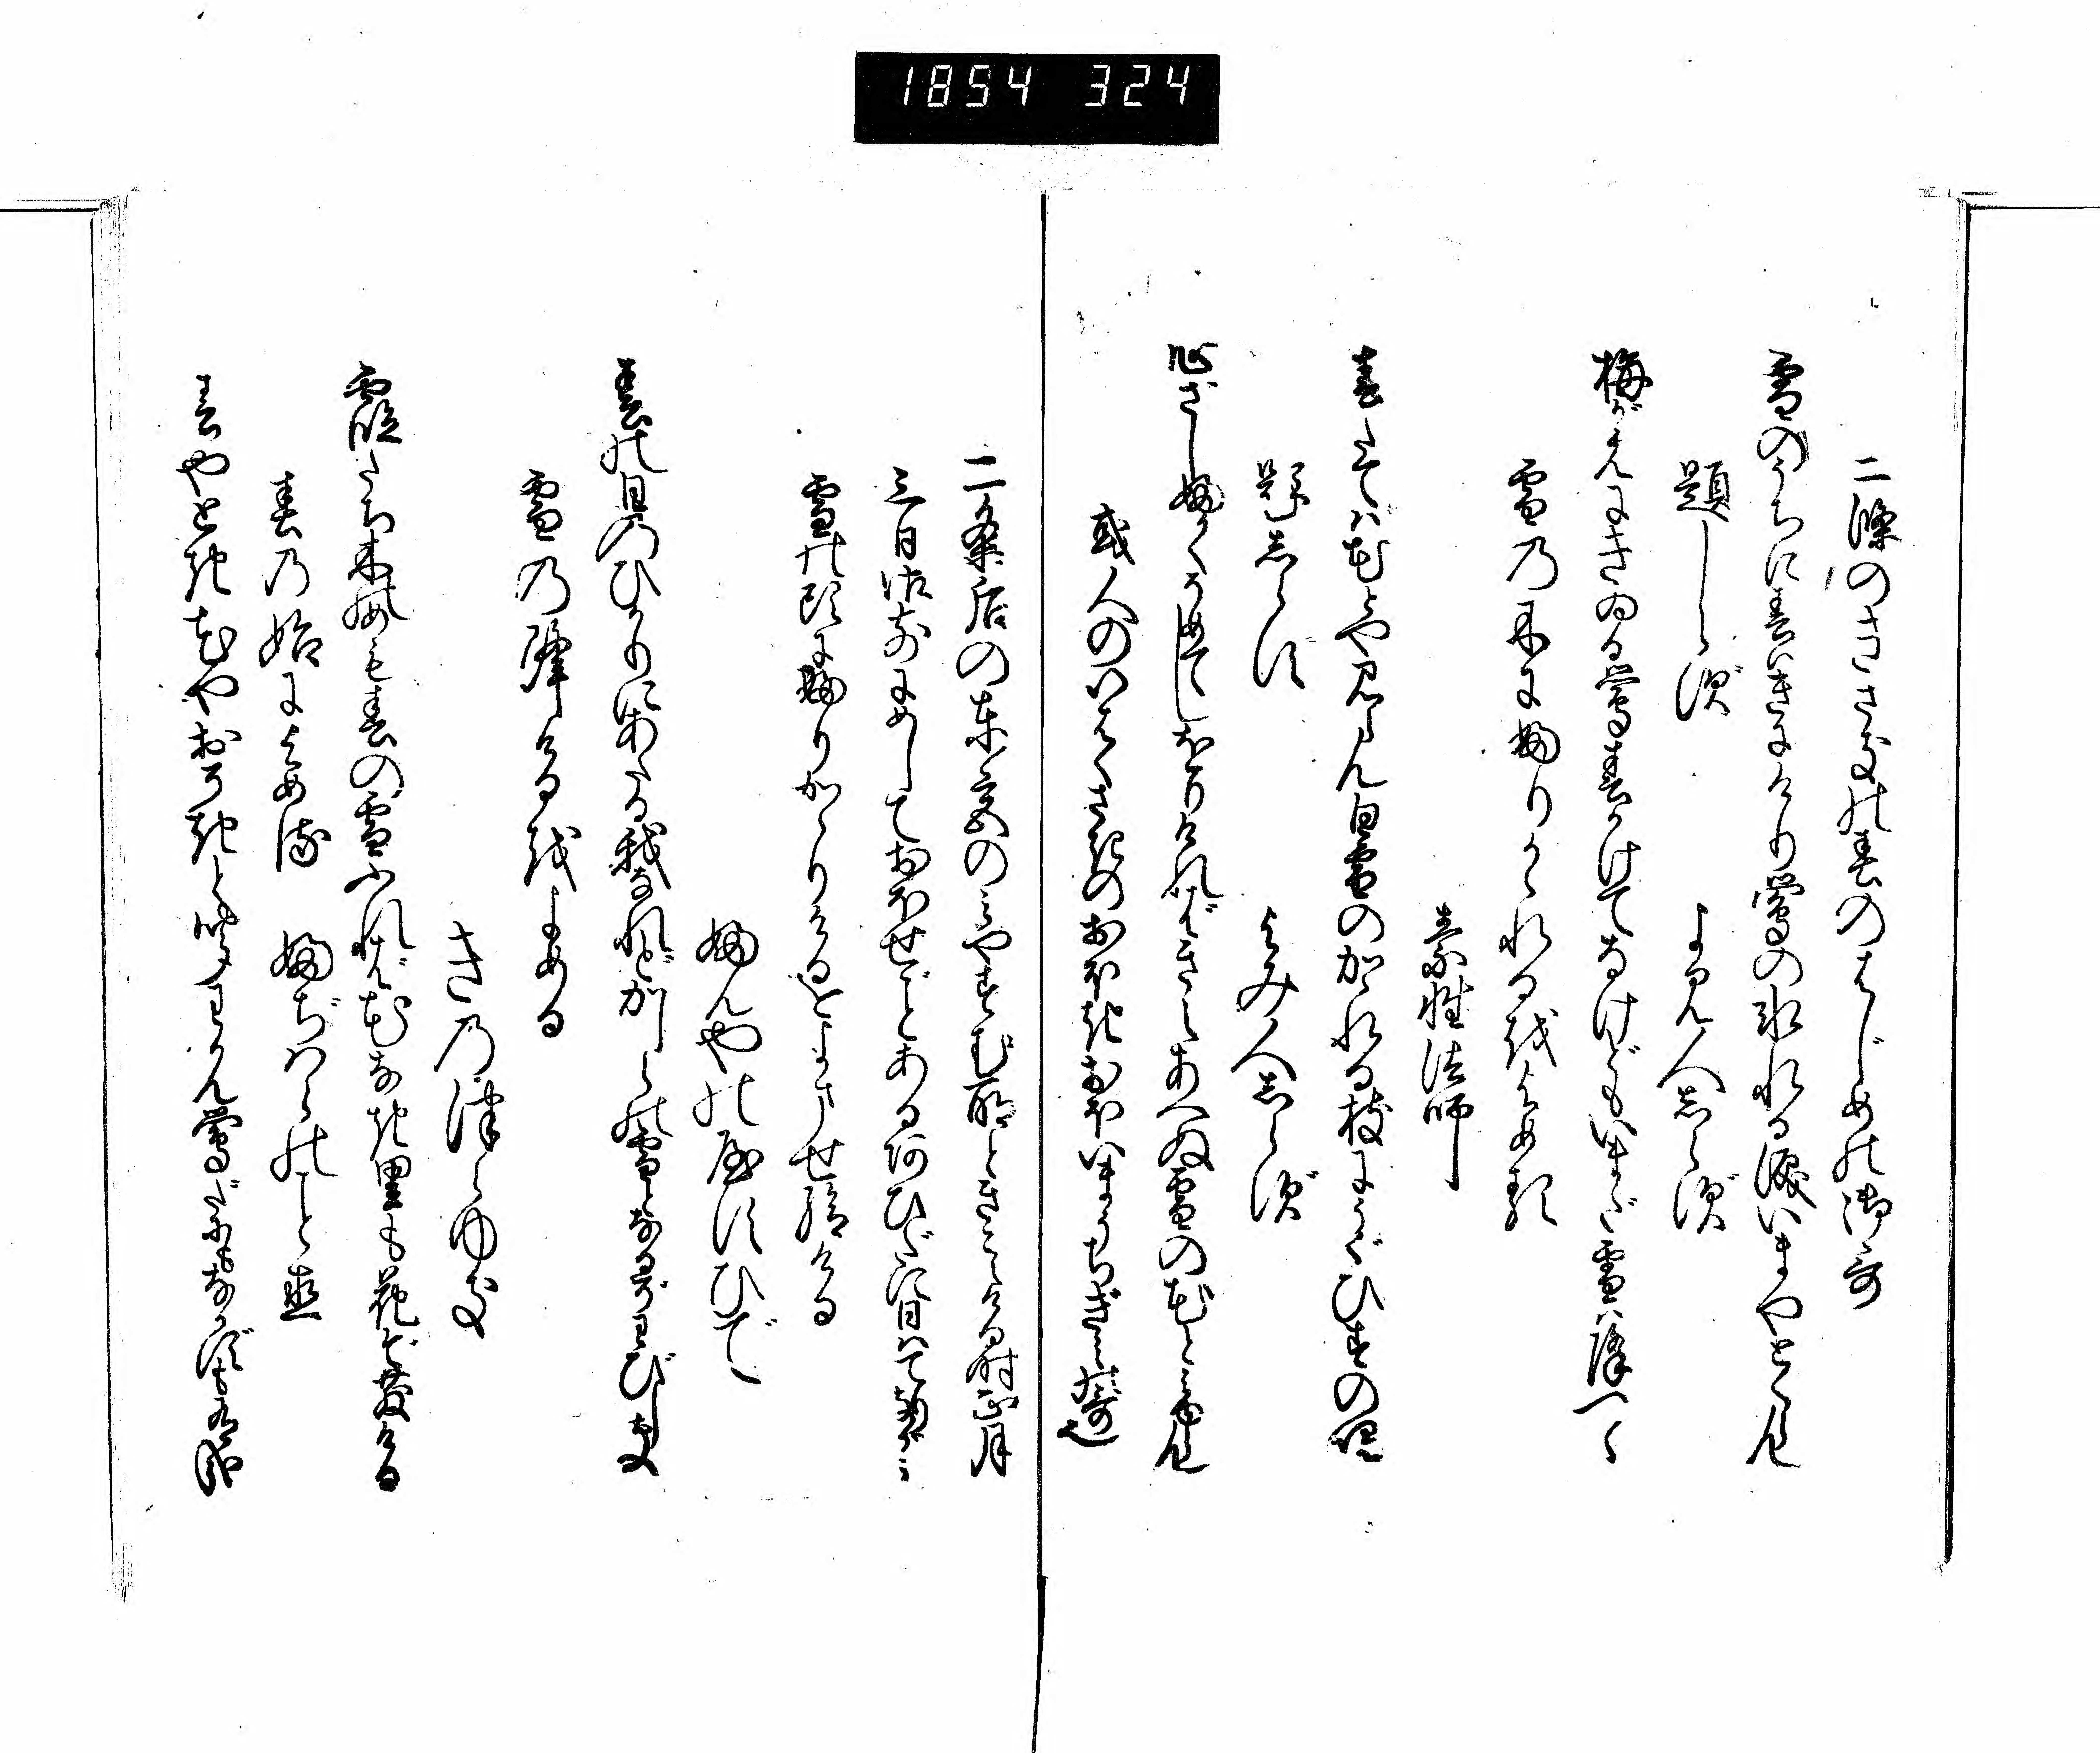 1854 324
二條のきさきの春のはじめの御哥
雪のうちに春はきにけり鶯の氷れる涙いまやとくらん
題しらず　よみ人志らず
梅がえにきゐる鶯春かけてなけどもいまだ雪は降つゝ
雪乃木にふりかゝれるをよめる
素性法師
春たてば花とや見らん白雪のかゝれる枝にうぐひすの鳴
題志らず　よみ人志らず
心ざしふかくそめてしをりければきえあへぬ雪の花と見ゆらん
或人のいはくさきのおほきおほいまうちぎみの哥也
二条后の東宮のみやすむ所ときこえける時正月
三日御前にめしておほせごとある間ひだに日はてりながら
雪の頭にふりかゝりけるをよませ給ける
ふんやのやすひで
春の日のひかりにあたる我なれどかしらの雪となるぞわびしき
雪乃降けるをよめる
きの津らゆき
霞たち木のめも春の雪ふれば花なき里も花ぞ散ける
春乃始によめる　ふぢはらのこと直
春やとき花やおそきと聞わかん鶯だにもなかずも有哉